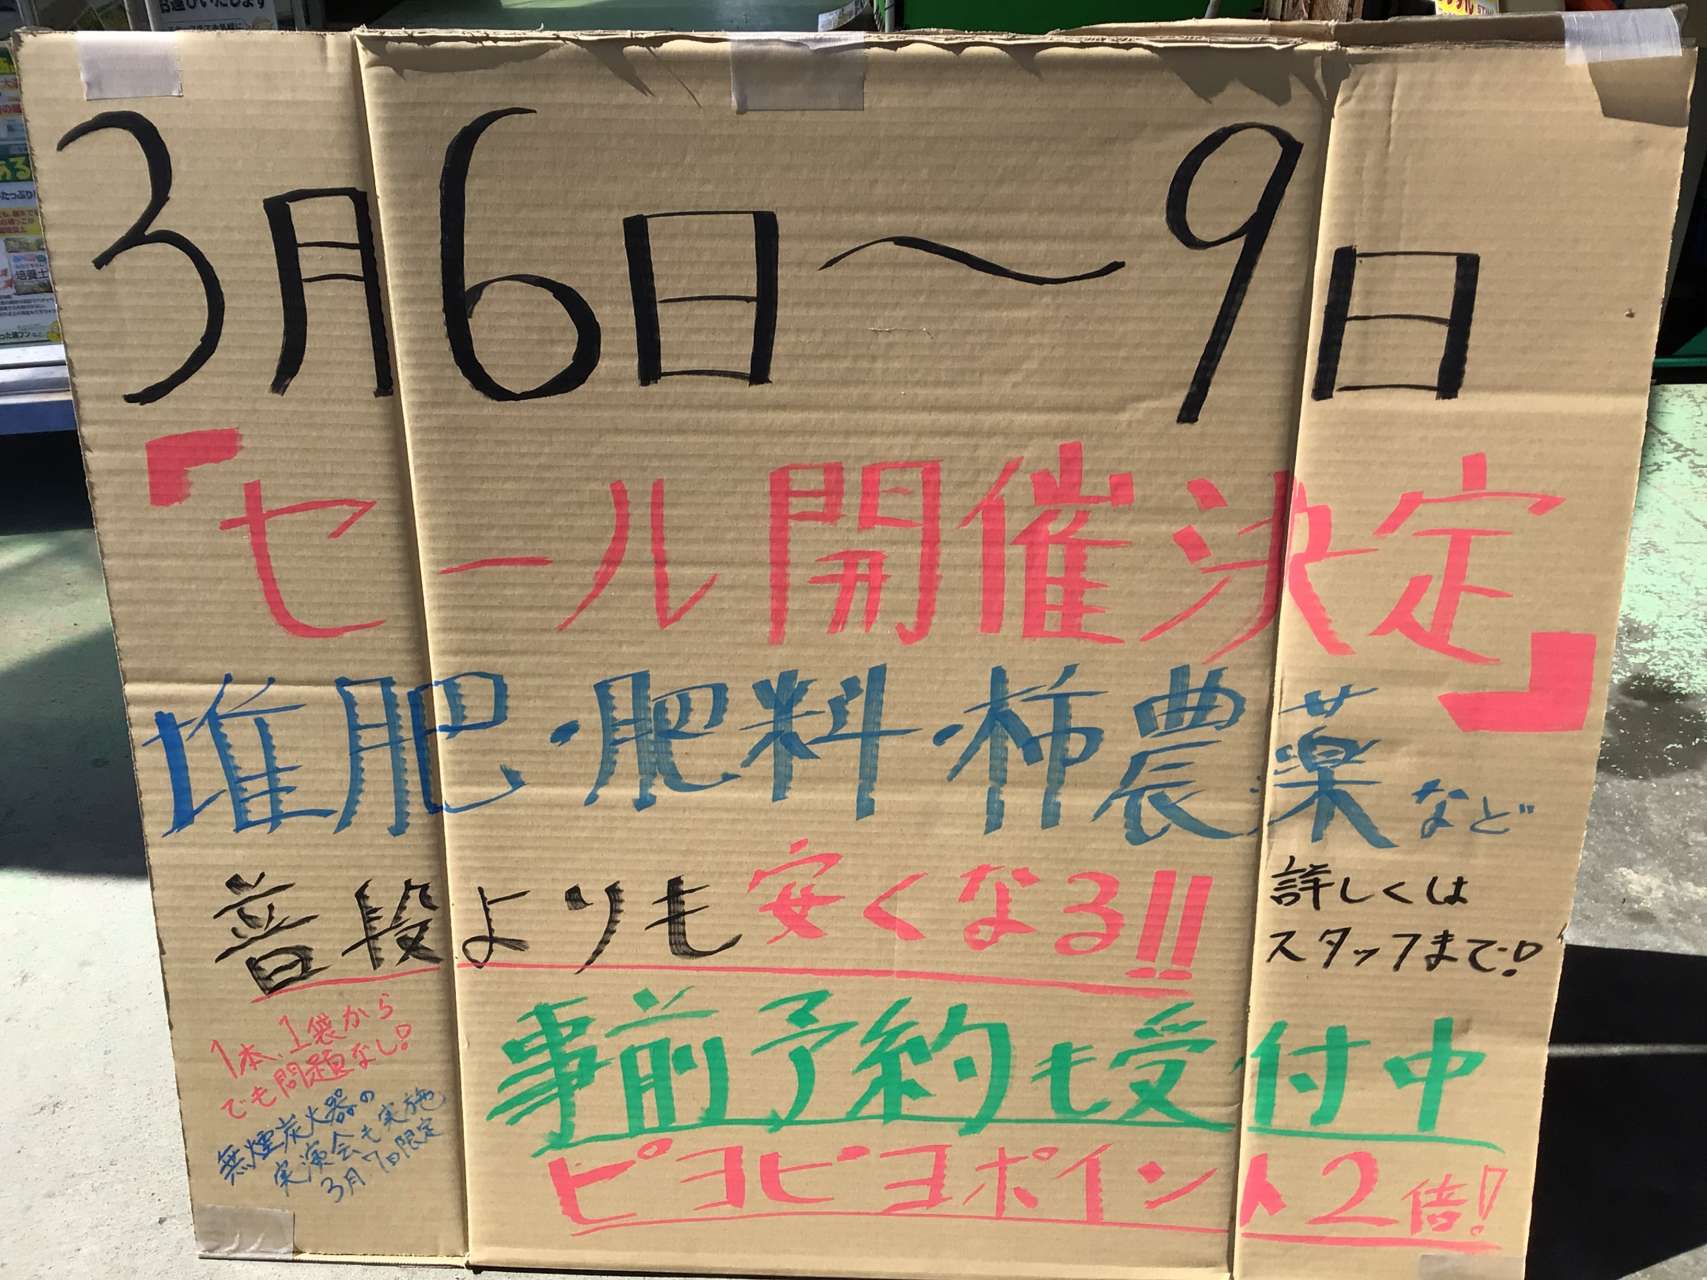 3月6日〜9日
『セール開催決定』
堆肥・肥料・柿農薬など
普段よりも安くなる!!
詳しくは
スタッフまで!
1本、1袋から
でも問題なし!
無煙炭火器の
実演会も実施
3月7日限定
事前予約も受付中
ピヨピヨポイント2倍!
培養土